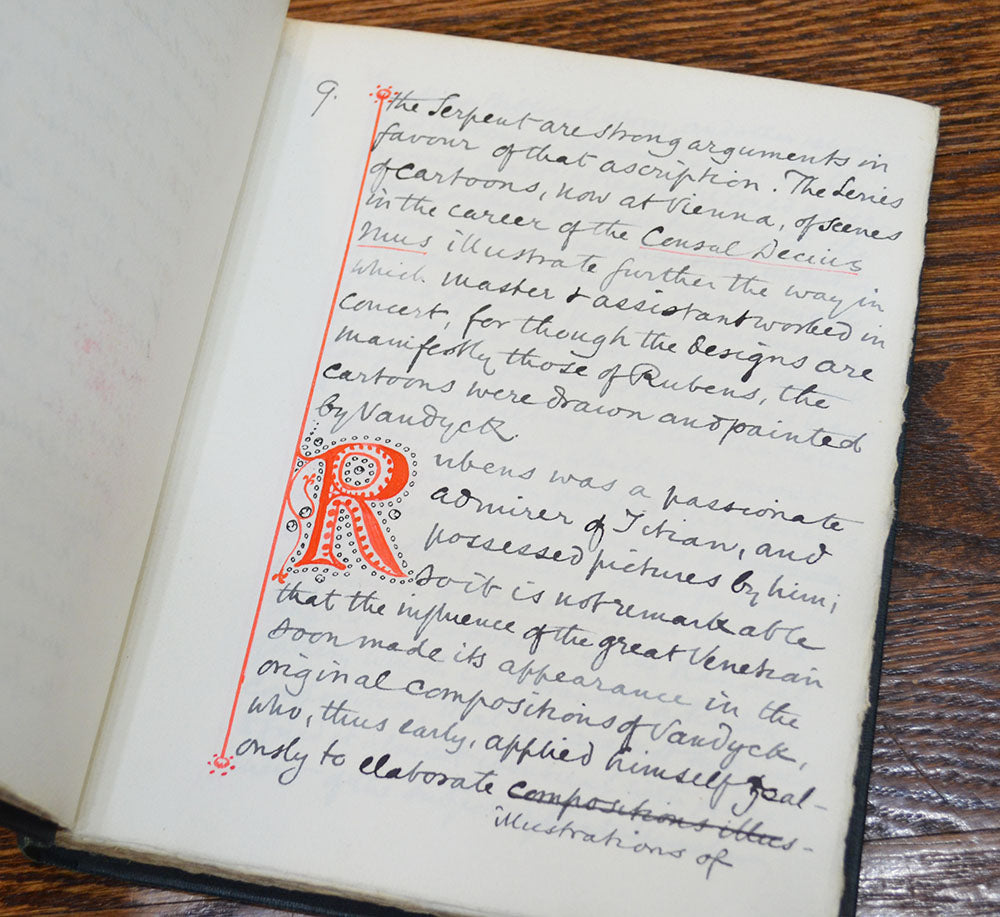 9.
the Serpent are strong arguments in
favour of that ascription. The Series
of cartoons, now at Vienna, of scenes
in the career of the Consul Decius
Mus illustrate further the way in
which master & assistant worked in
concert, for though the designs are
manifestly those of Rubens, the
cartoons were drawn and painted
by Vandyck.
Rubens was a passionate
admirer of Titian, and
possessed pictures by him;
so it is not remarkable
that the influence of the great Venetian
soon made its appearance in the
original compositions of Vandyck,
who, thus early, applied himself zeal-
ously to elaborate compositions illus-
illustrations of